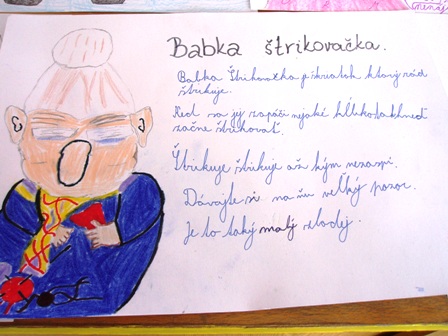 Babka štrikovačka.
Babka Štrikovačka je škriatok ktorý rád
štrikuje.
Keď sa jej zapáči nejaké klbko hneď
začne štrikovať.
Štrikuje štrikuje až kým nezaspí.
Dávajte si na ňu veľký pozor.
Je to taký malý zlodej.